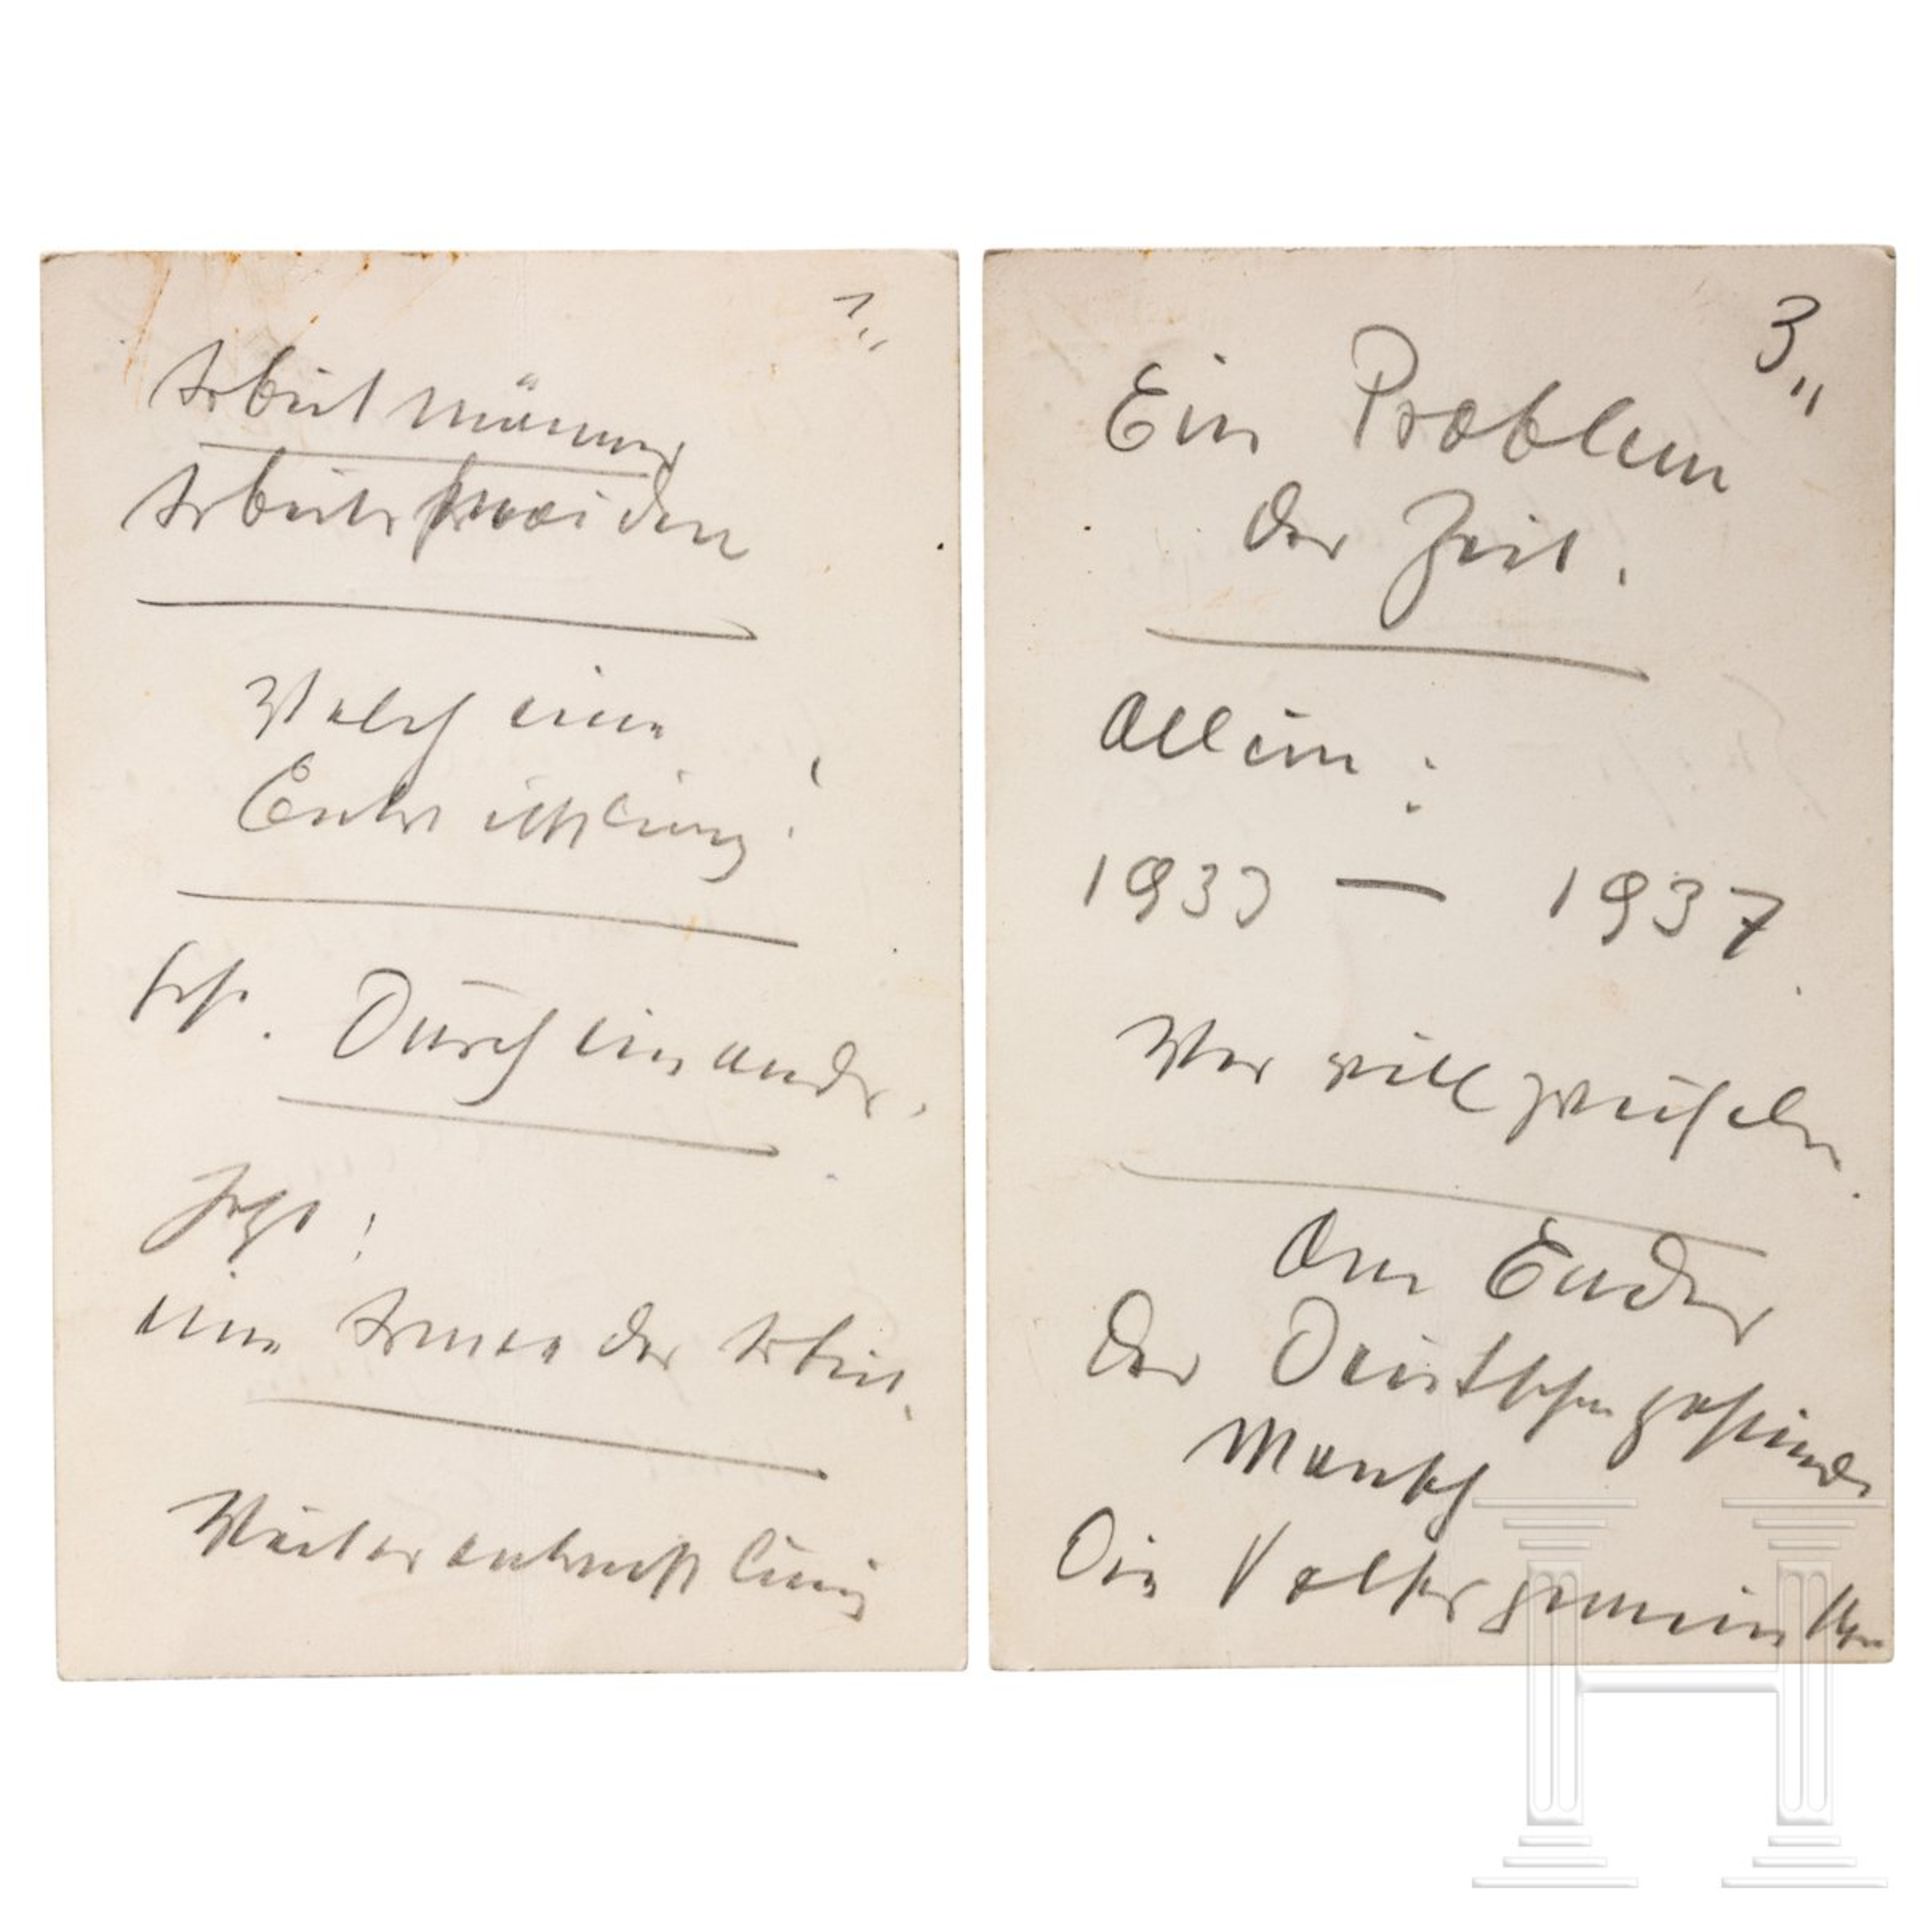 1.,,
Arbeitmänner
Arbeitsmaiden
Welch eine
Entwicklung!
Durcheinander.
Jetzt:
eine Armee der Arbeit.
Weiterentwicklung
3.,,
Ein Problem
der Zeit.
Allein:
1933 — 1937
Wer will zweifeln.
Am Ende
der Deutsche gesunde
Mensch
Die Volksgemeinschaft